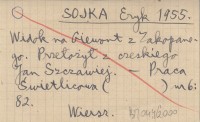 SOJKA Eryk 1955.
Widok na Giewont z Zakopane-
go. Przełożył z czeskiego
Jan Szczawiej. – Praca
Świetlicowa ( ) nr 6:
S2.
Wiersz.